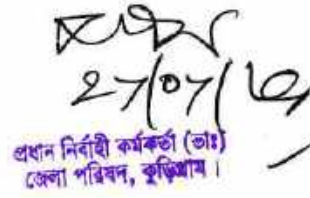 27/07/
প্রধান নির্বাহী কর্মকর্তা (ভাঃ)
জেলা পরিষদ, কুড়িগ্রাম।